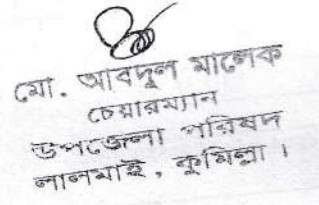 মো. আবদুল মালেক
চেয়ারম্যান
উপজেলা পরিষদ
লালমাই, কুমিল্লা।